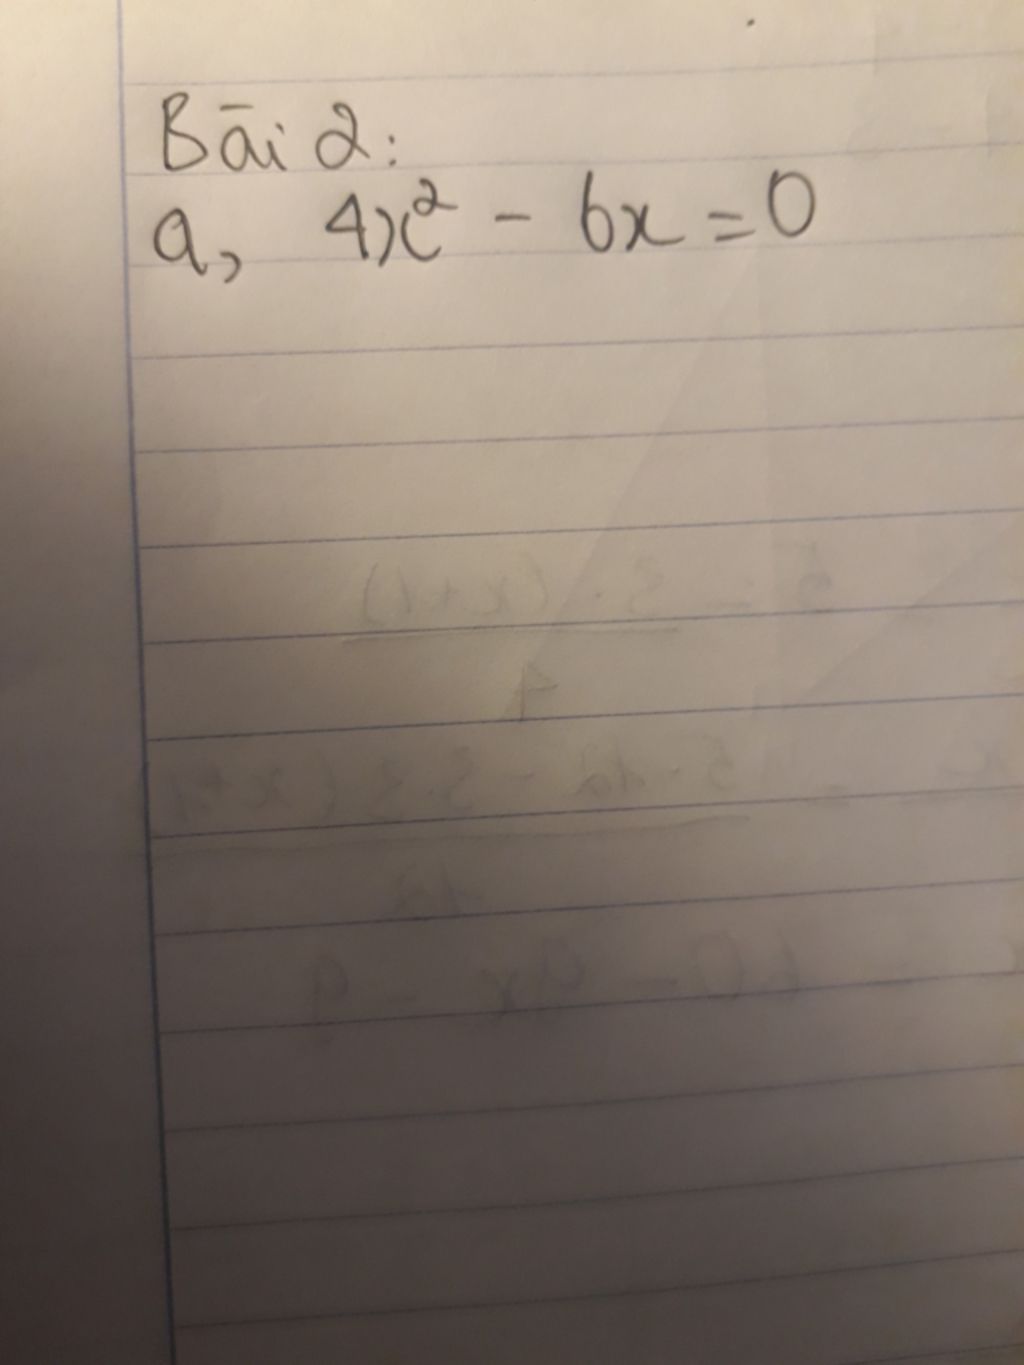 Bāi 2:
a, 4x² - 6x = 0